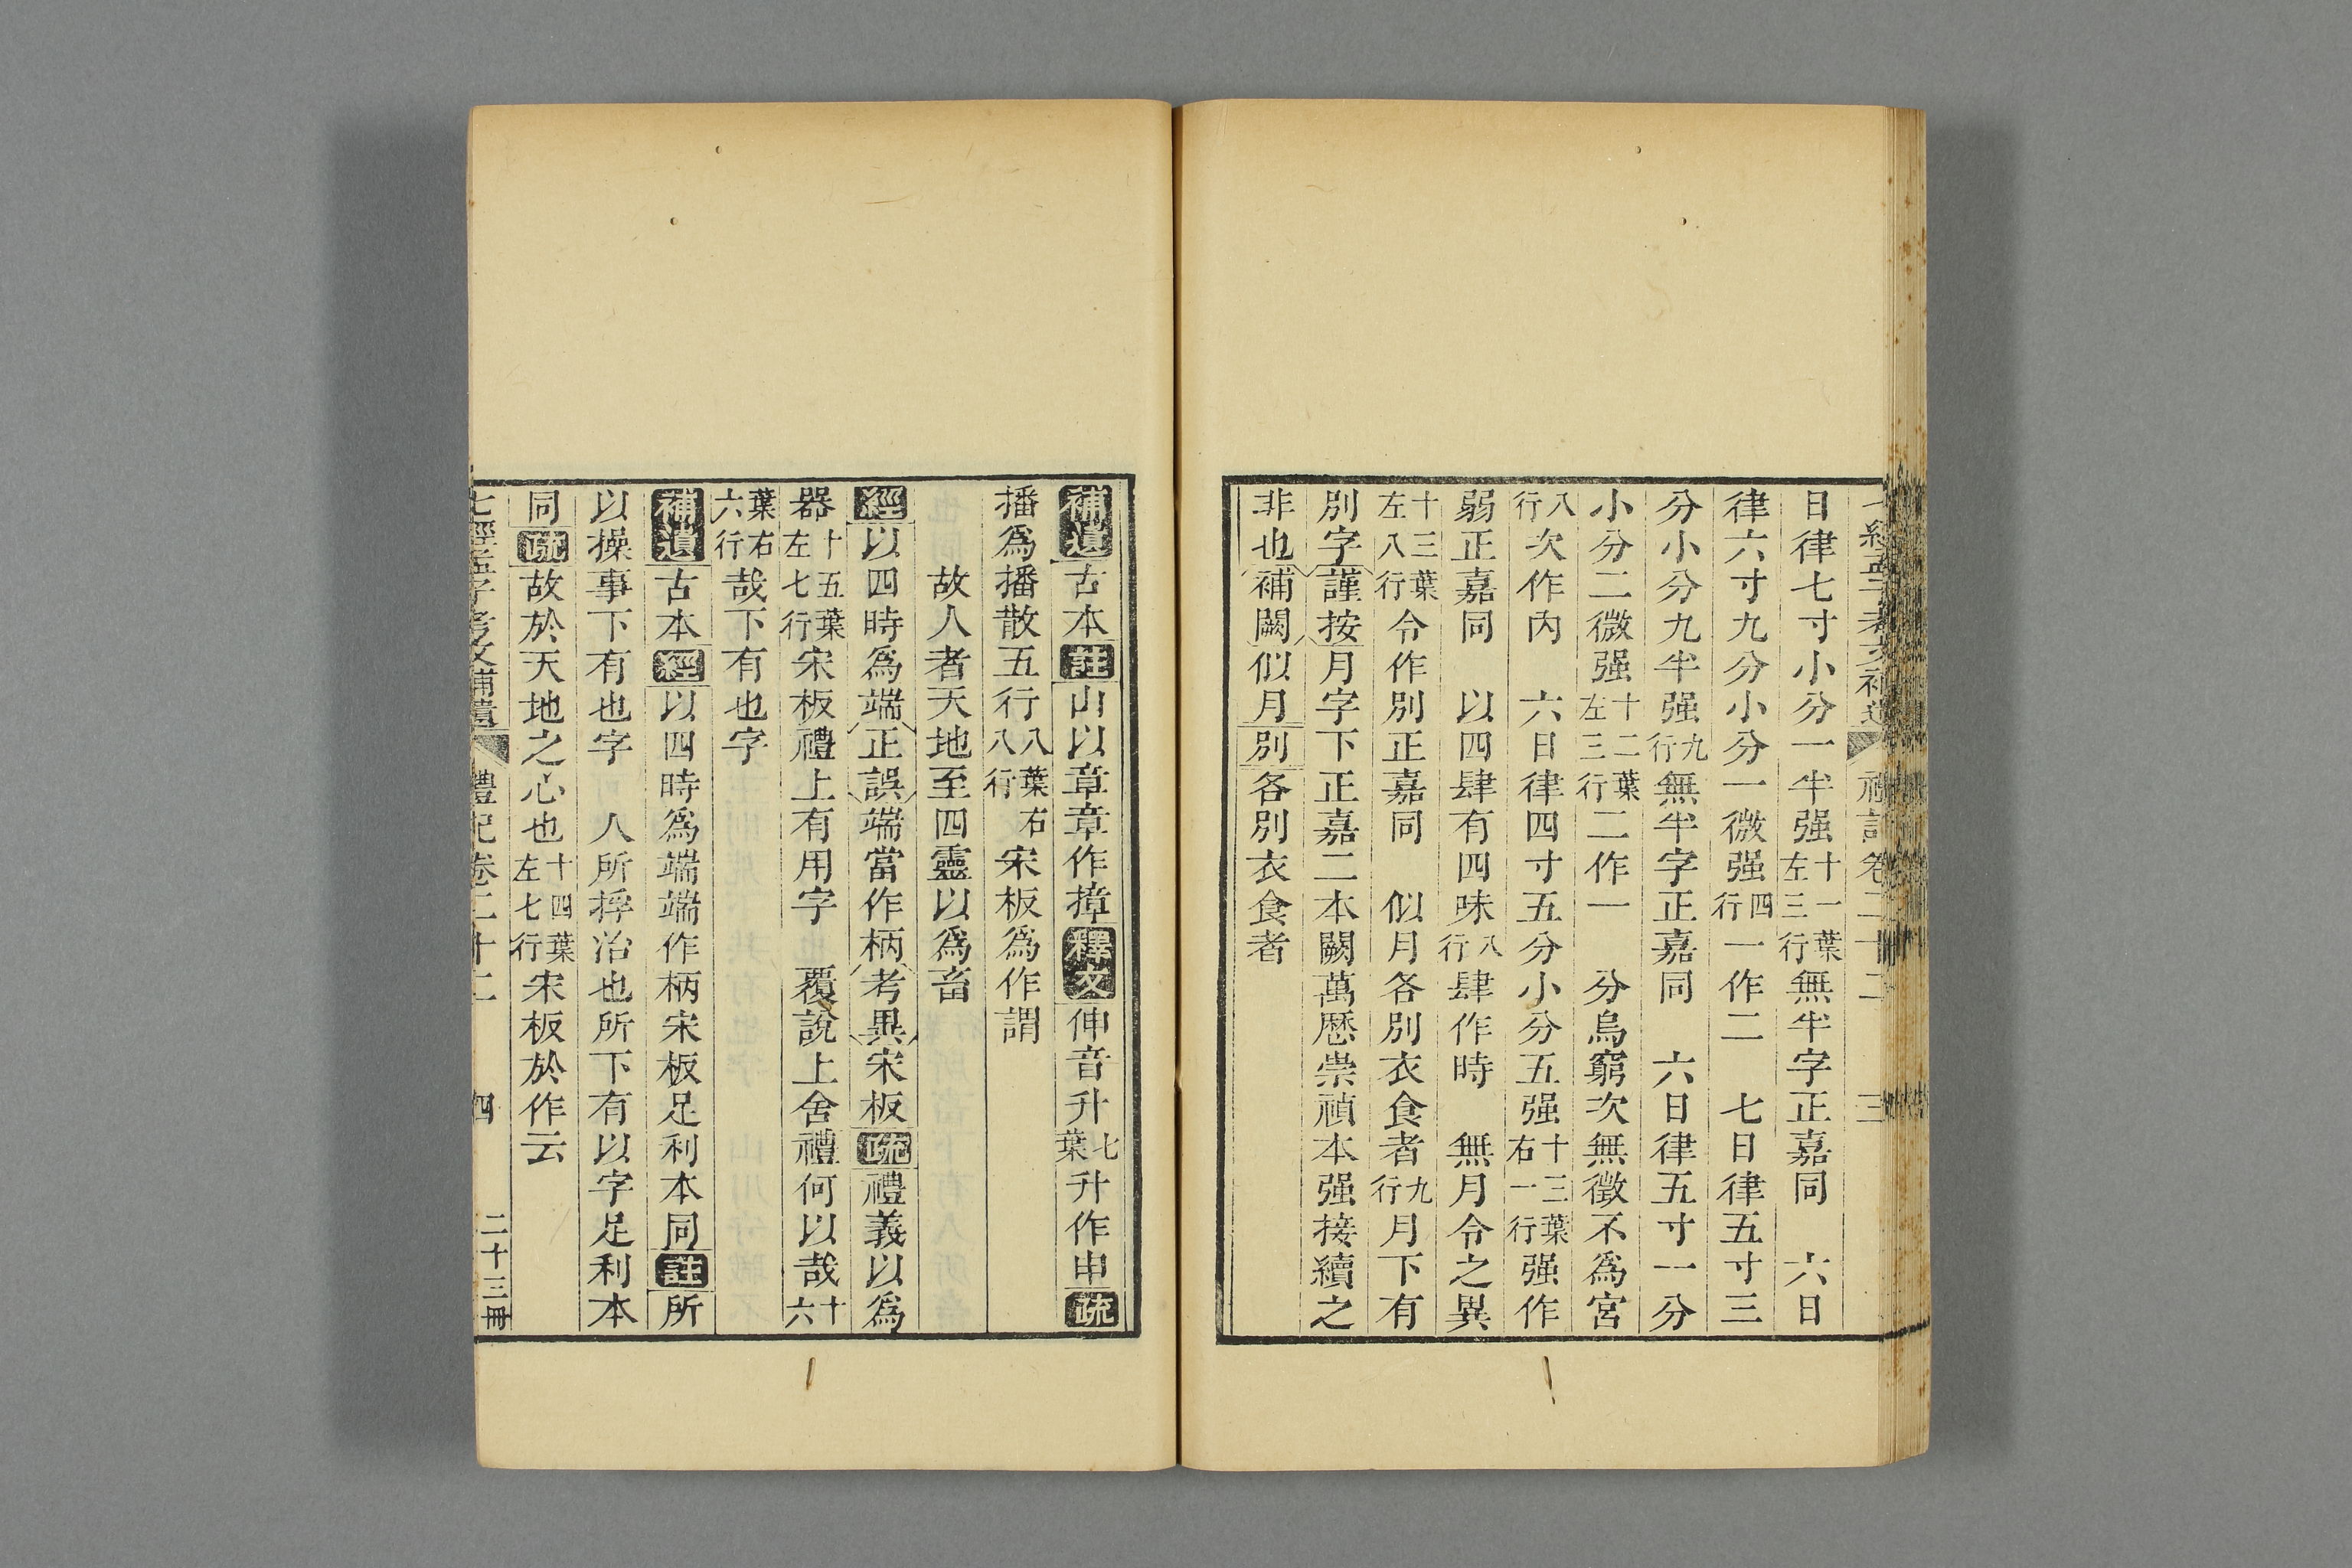 七經孟子考文補遺 禮記卷二十二 三
日律七寸小分一半强十一葉左三行無半字正嘉同 六日
律六寸九分小分一微强四行一作二 七日律五寸三
分小分九半强九行無半字正嘉同 六日律五寸一分
小分二微强十二葉左三行二作一 分烏窮次無徵不為宮
八行次作內 六日律四寸五分小分五强十三葉右一行强作
弱正嘉同 以四肆有四味八行肆作時 無月令之異
十三葉左八行令作別正嘉同 似月各別衣食者九行月下有
別字謹按月字下正嘉二本闕萬曆崇禎本强接續之
非也補闕似月別各別衣食者
補遺古本註山以章章作撞釋文伸音升七葉升作申疏
播為播散五行八葉右八行宋板為作謂
故人者天地至四靈以為畜
經以四時為端正誤端當作柄考異宋板疏禮義以為
器十五葉左七行宋板禮上有用字 覆說上舍禮何以哉十六
葉右六行哉下有也字
補遺古本經以四時為端端作柄宋板足利本同註所
以操事下有也字 人所捊治也所下有以字足利本
同疏故於天地之心也十四葉左七行宋板於作云
七經孟子考文補遺 禮記卷二十二 四 二十三冊